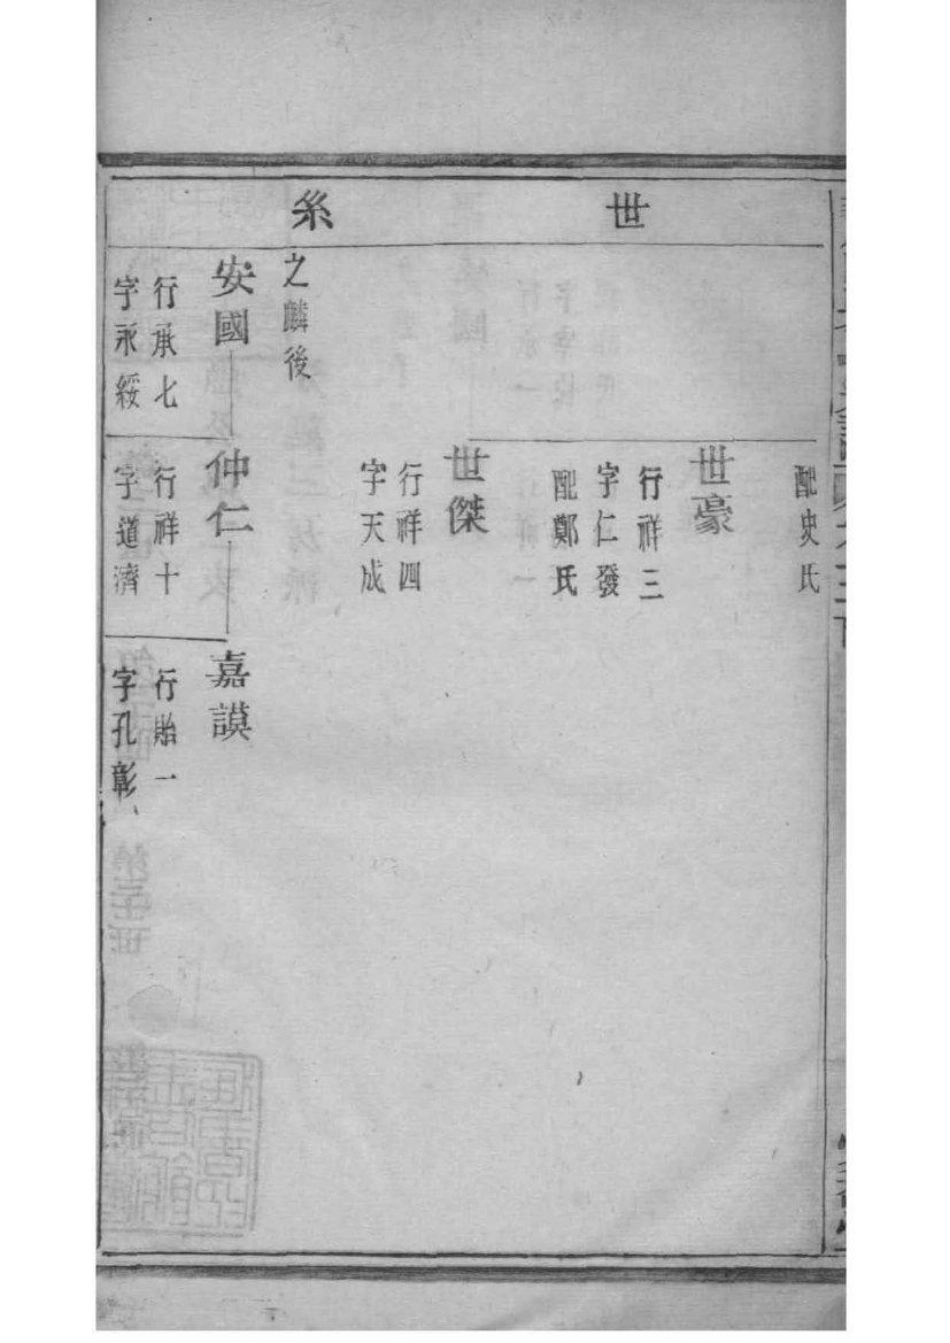 世系
配史氏
世豪
行祥三
字仁發
配鄭氏
世傑
行祥四
字天成
之麟後
安國
行承七
字永綏
仲仁
行祥十
字道濟
嘉謨
行貽一
字孔彰